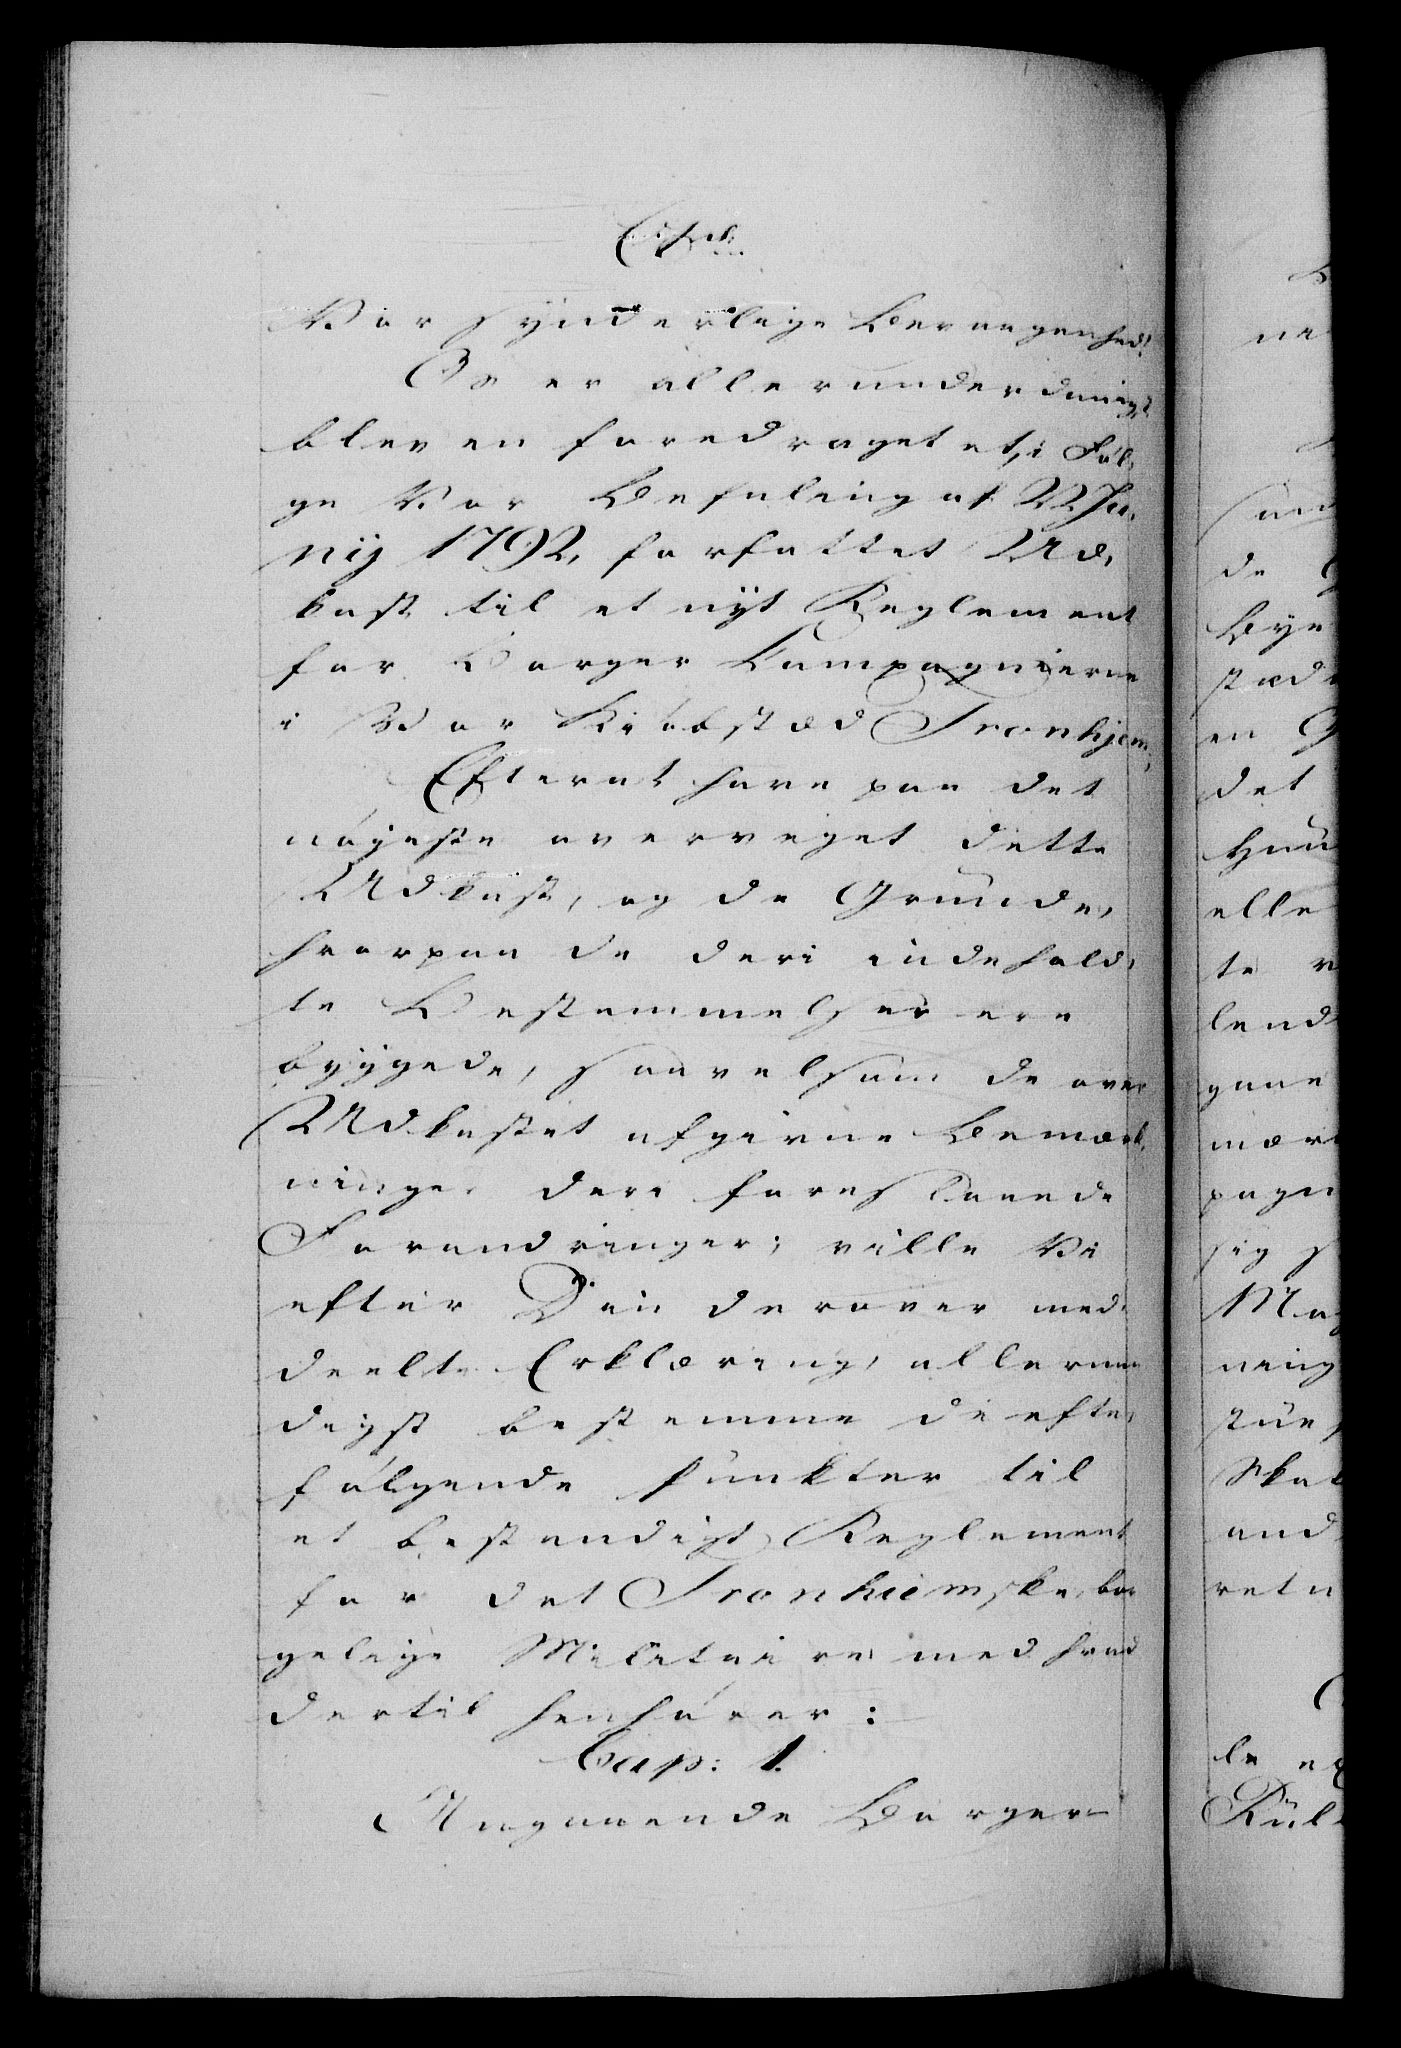 Vor synderlige Bevaagenhed!
Os er allerunderdanigst
bleven foredraget et, i Føl-
ge Vor Befaling af 22 Ju-
nij 1792, forfattet Ud-
kast til et nyt Reglement
for Borger Compagnierne
i Vor Kiøbstæd Tronhjem,
Efter at have paa det
nøyeste overveyet dette
Udkast, og de Grunde,
hvorpaa de deri indehold-
te Bestemmelser ere
byggede, saavelsom de over
Udkastet afgivne Bemærk-
ninger deri foreslaaede
Forandringer; ville Vi
efter Din derover med-
deelte Erklæring, allernaa
digst bestemme de efter
følgende Punkter til
et bestandigt Reglement
for det Tronhiemske bor
gelige Militaire med hvad
dertil henhører:
Cap: 1.
Angaaende Borger
ne
de
Bye
stæd
en G
det
Huu
elle
te v
lend
gaae
mær
pagn
sig s
Ma
ning
Skal
and
ret
le
Rull